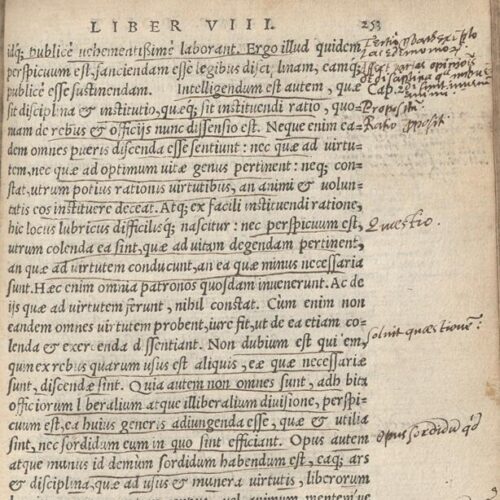 LIBER VIII. 253
idq́; publicè uehementißimè laborant. Ergo illud quidem
perspicuum est, sanciendam esse legibus disciplinam, eamq́;
publicè esse sustinendam. Intelligendum est autem, quæ
sit disciplina & institutio, quæq́; sit instituendi ratio, quo-
niam de rebus & officijs nunc dissensio est. Neque enim ea-
dem omnes pueris discenda esse sentiunt: nec quæ ad uirtu-
tem, nec quæ ad optimum uitæ genus pertinent: neq; con-
stat, utrum potius rationis uirtutibus, an animi & uolun-
tatis eos instituere deceat. Atq; ex facili instituendi ratione,
hic locus lubricus difficilisq́; nascitur: nec perspicuum est,
utrum colenda ea sint, quæ ad uitam degendam pertinent,
an quæ ad uirtutem conducunt, an ea quæ minus necessaria
sunt. Hæc enim omnia patronos quosdam inuenerunt. Ac de
ijs quæ ad uirtutem ferunt, nihil constat. Cum enim non
eandem omnes uirtutem probent, iure fit, ut de ea etiam co-
lenda & exercenda dissentiant. Non dubium est quidem,
quin ex rebus quarum usus est aliquis, eæ quæ necessariæ
sunt, discendæ sint. Quia autem non omnes sunt, adhibita
officiorum liberalium atque illiberalium diuisione, perspi-
cuum est, ea huius generis adiungenda esse, quæ & utilia
sint, nec sordidum eum in quo sint efficiant. Opus autem
atque munus id demùm sordidum habendum est, eaq́; ars
& disciplina, quæ ad usus & munera uirtutis, liberorum
Propositi
Ratio proposit.
Quæstio.
soluit quæstionem:
opus sordidu qd